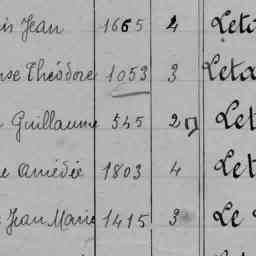 is Jean 1665 4 Leto
se Théodore 1053 3 Leta
Guillaume 545 2 Let
e Amédée 1803 4 Let
Jean Marie 1415 3 Le